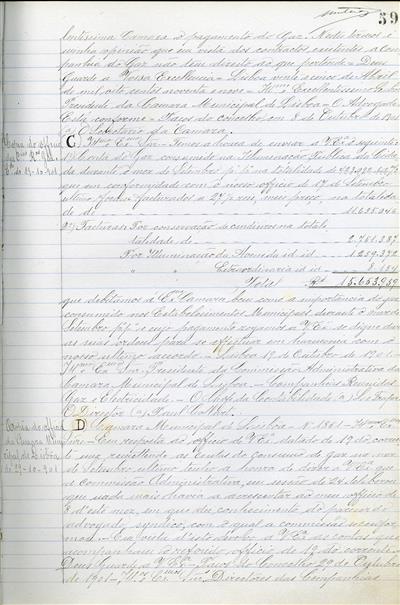 59
lentissima Camara o pagamento do Gaz. Nestes termos é
minha opinião que em vista dos contractos existentes a Com
panhia do Gaz não tem direito ao que pretende = Deus
Guarde a Vossa Excellencia = Lisboa vinte e seis de Abril
de mil oito centos noventa e nove = Excellentissimo Senhor
Presidente da Camara Municipal de Lisboa = O Advogado
Está conforme = Paços do concelho em 8 de Outubro de 1901
O Secretario da Camara.
Copia do officio
das 19-10-901
C Temos a honra de enviar a V. Exª a seguinte
conta do Gaz consumido na Illuminação Publica da Cida
de durante o mez de Setembro p. p. na totalidade de
que em conformidade com o nosso officio de 17 de Setembro
ultimo foram facturados a 27 reis, preço, na totalida
de de 11.635.946
2 Facturas: Por conservação de candieiros na totali
talidade de 2.751.387
Por Illuminação da Avenida id. id. 1.259.372
" " Extraordinaria id. id. 8.154
Total Rs 15.653.959
que debitamos á Exª Camara, bem como a importancia do gaz
consumido nos Estabelecimentos Municipaes durante o mez de
Setembro p. p. e cujo pagamento rogamos a V. Exª se digne dar
as suas ordens para se effectuar em harmonia com o
nosso ultimo accordo = Lisboa 19 de Outubro de 1901 =
Presidente da Commissão Administrativa da
Camara Municipal de Lisboa = Companhias Reunidas
Gaz e Electricidade = O Chefe da Contabilidade
O Director (a)
Copia do officio
da Camara Muni
cipal de Lisboa
de 29-10-901
D Camara Municipal de Lisboa = N. 1561 =
Em resposta ao officio de V. Exª datado de 19 do corren
te mez remettendo as contas do consumo de gaz no mez
de Setembro ultimo tenho a honra de dizer a V. Exª que
a Commissão Administrativa, em sessão de 24 deliberou
que nada mais havia a acrescentar ao meu officio de
8 d'este mez, em que dei conhecimento do parecer do
advogado syndico, com o qual a commissão se confor
mou. = Em vista d'isto devolvo a V. Exª as contas que
acompanharam o referido officio de 19 do corrente =
Deus Guarde a V. Exª = Paços do Concelho 29 de Outubro
de 1901 = Directores das Companhias